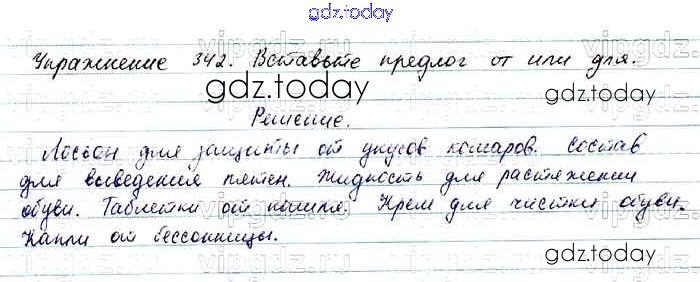 gdz.today
Упражнение 342. Вставьте предлог от или для.
gdz.today
gdz.today
Решение.
Лосьон для защиты от укусов комаров. Состав
для выведения пятен. Жидкость для растяжении
обуви. Таблетки от кашля. Крем для чистки обуви.
Капли от бессонницы.
gdz.today